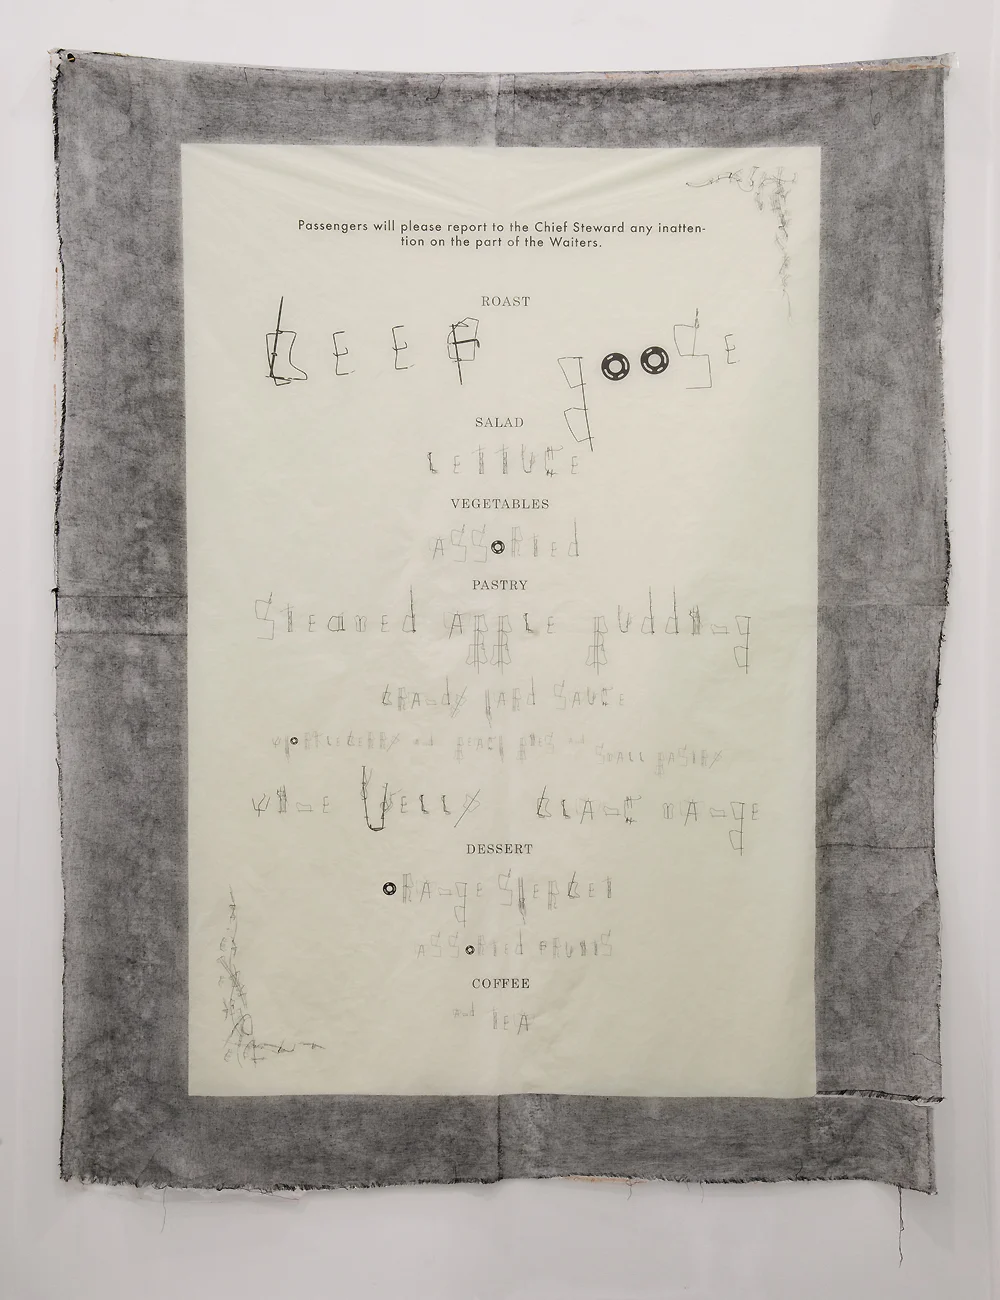 Passengers will please report to the Chief Steward any inatten-
tion on the part of the Waiters.
ROAST
bEEf goosE
SALAD
LETTUCE
VEGETABLES
ASSoRTEd
PASTRY
StEamEd AppLE puddIng
bRAndy hARd SAUCE
WhoRTLEbERRy and pEACh pIES and SmALL pASTRy
wInE JELLy bLAnC mAngE
DESSERT
oRAngE ShERbET
ASSoRTEd FRUITS
COFFEE
And TEA